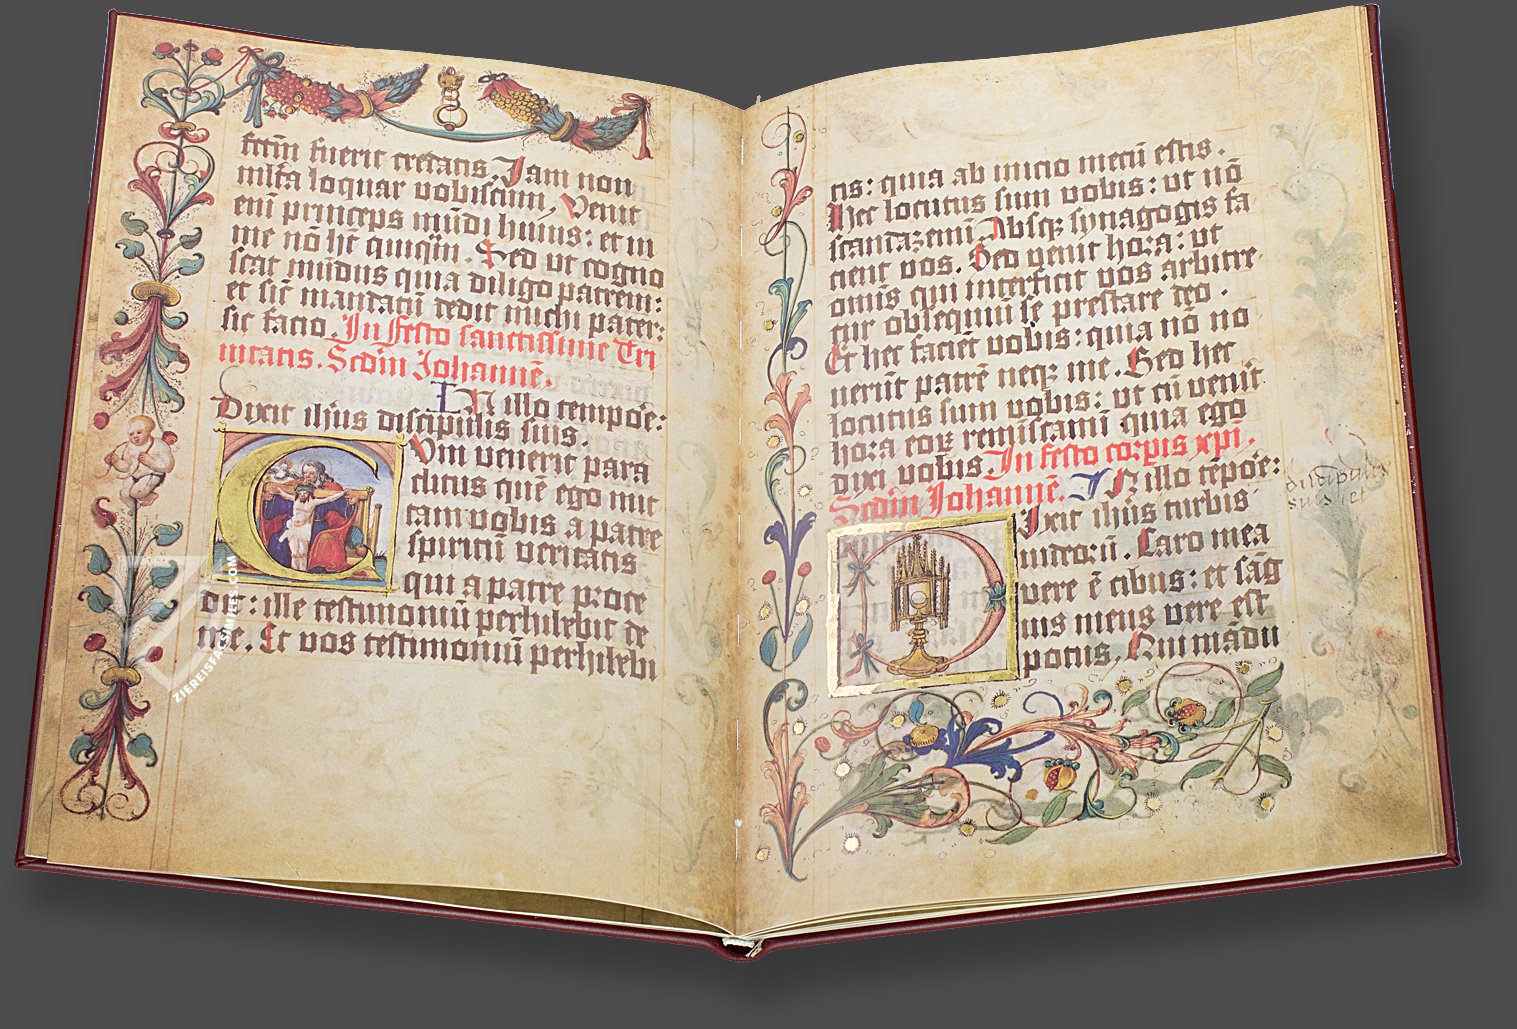 ftm̄ fuerit credatis. Jam non
mlta loquar vobiscum, Venit
em̄ princeps mūdi huius: et in
me nō ht̄ quiqm̄. Sed vt cogno
scat mūdus quia diligo patrem:
et sic̄ mandatū dedit michi pater:
sic facio. In festo sanctissime Tri
nitatis. Scdm̄ Johannē.
IN illo tempoe:
Dixit ihūs discipulis suis.
Cum venerit para
clitus quē ego mit
tam vobis a patre
spiritū veritatis
qui a patre proce
dit: ille testimoniū perhibebit de
me. Et vos testimoniū perhibebi
tis: quia ab inicio mecū estis.
Hec locutus sum vobis: vt nō
scandazemī Absqꝫ synagogis fa
cient vos. Sed venit hora: vt
omīs qui interficit vos arbitre
tur obsequiū se prestare deo.
Et hec faciēt vobis: quia nō no
uerūt patrē neqꝫ me. Sed hec
locutus sum vobis: vt cū venit
hora eoꝝ remiscamī quia ego
dixi vobis. In festo corpis xpī.
Scdm̄ Johannē. IN illo tēpoe:
Dixit ihūs turbis
iudeorū. Caro mea
vere ē cibus: et sāg
uis meus vere est
potus. Qui mādu
discipulis
suis et
ZIEREISFACSIMILES.COM